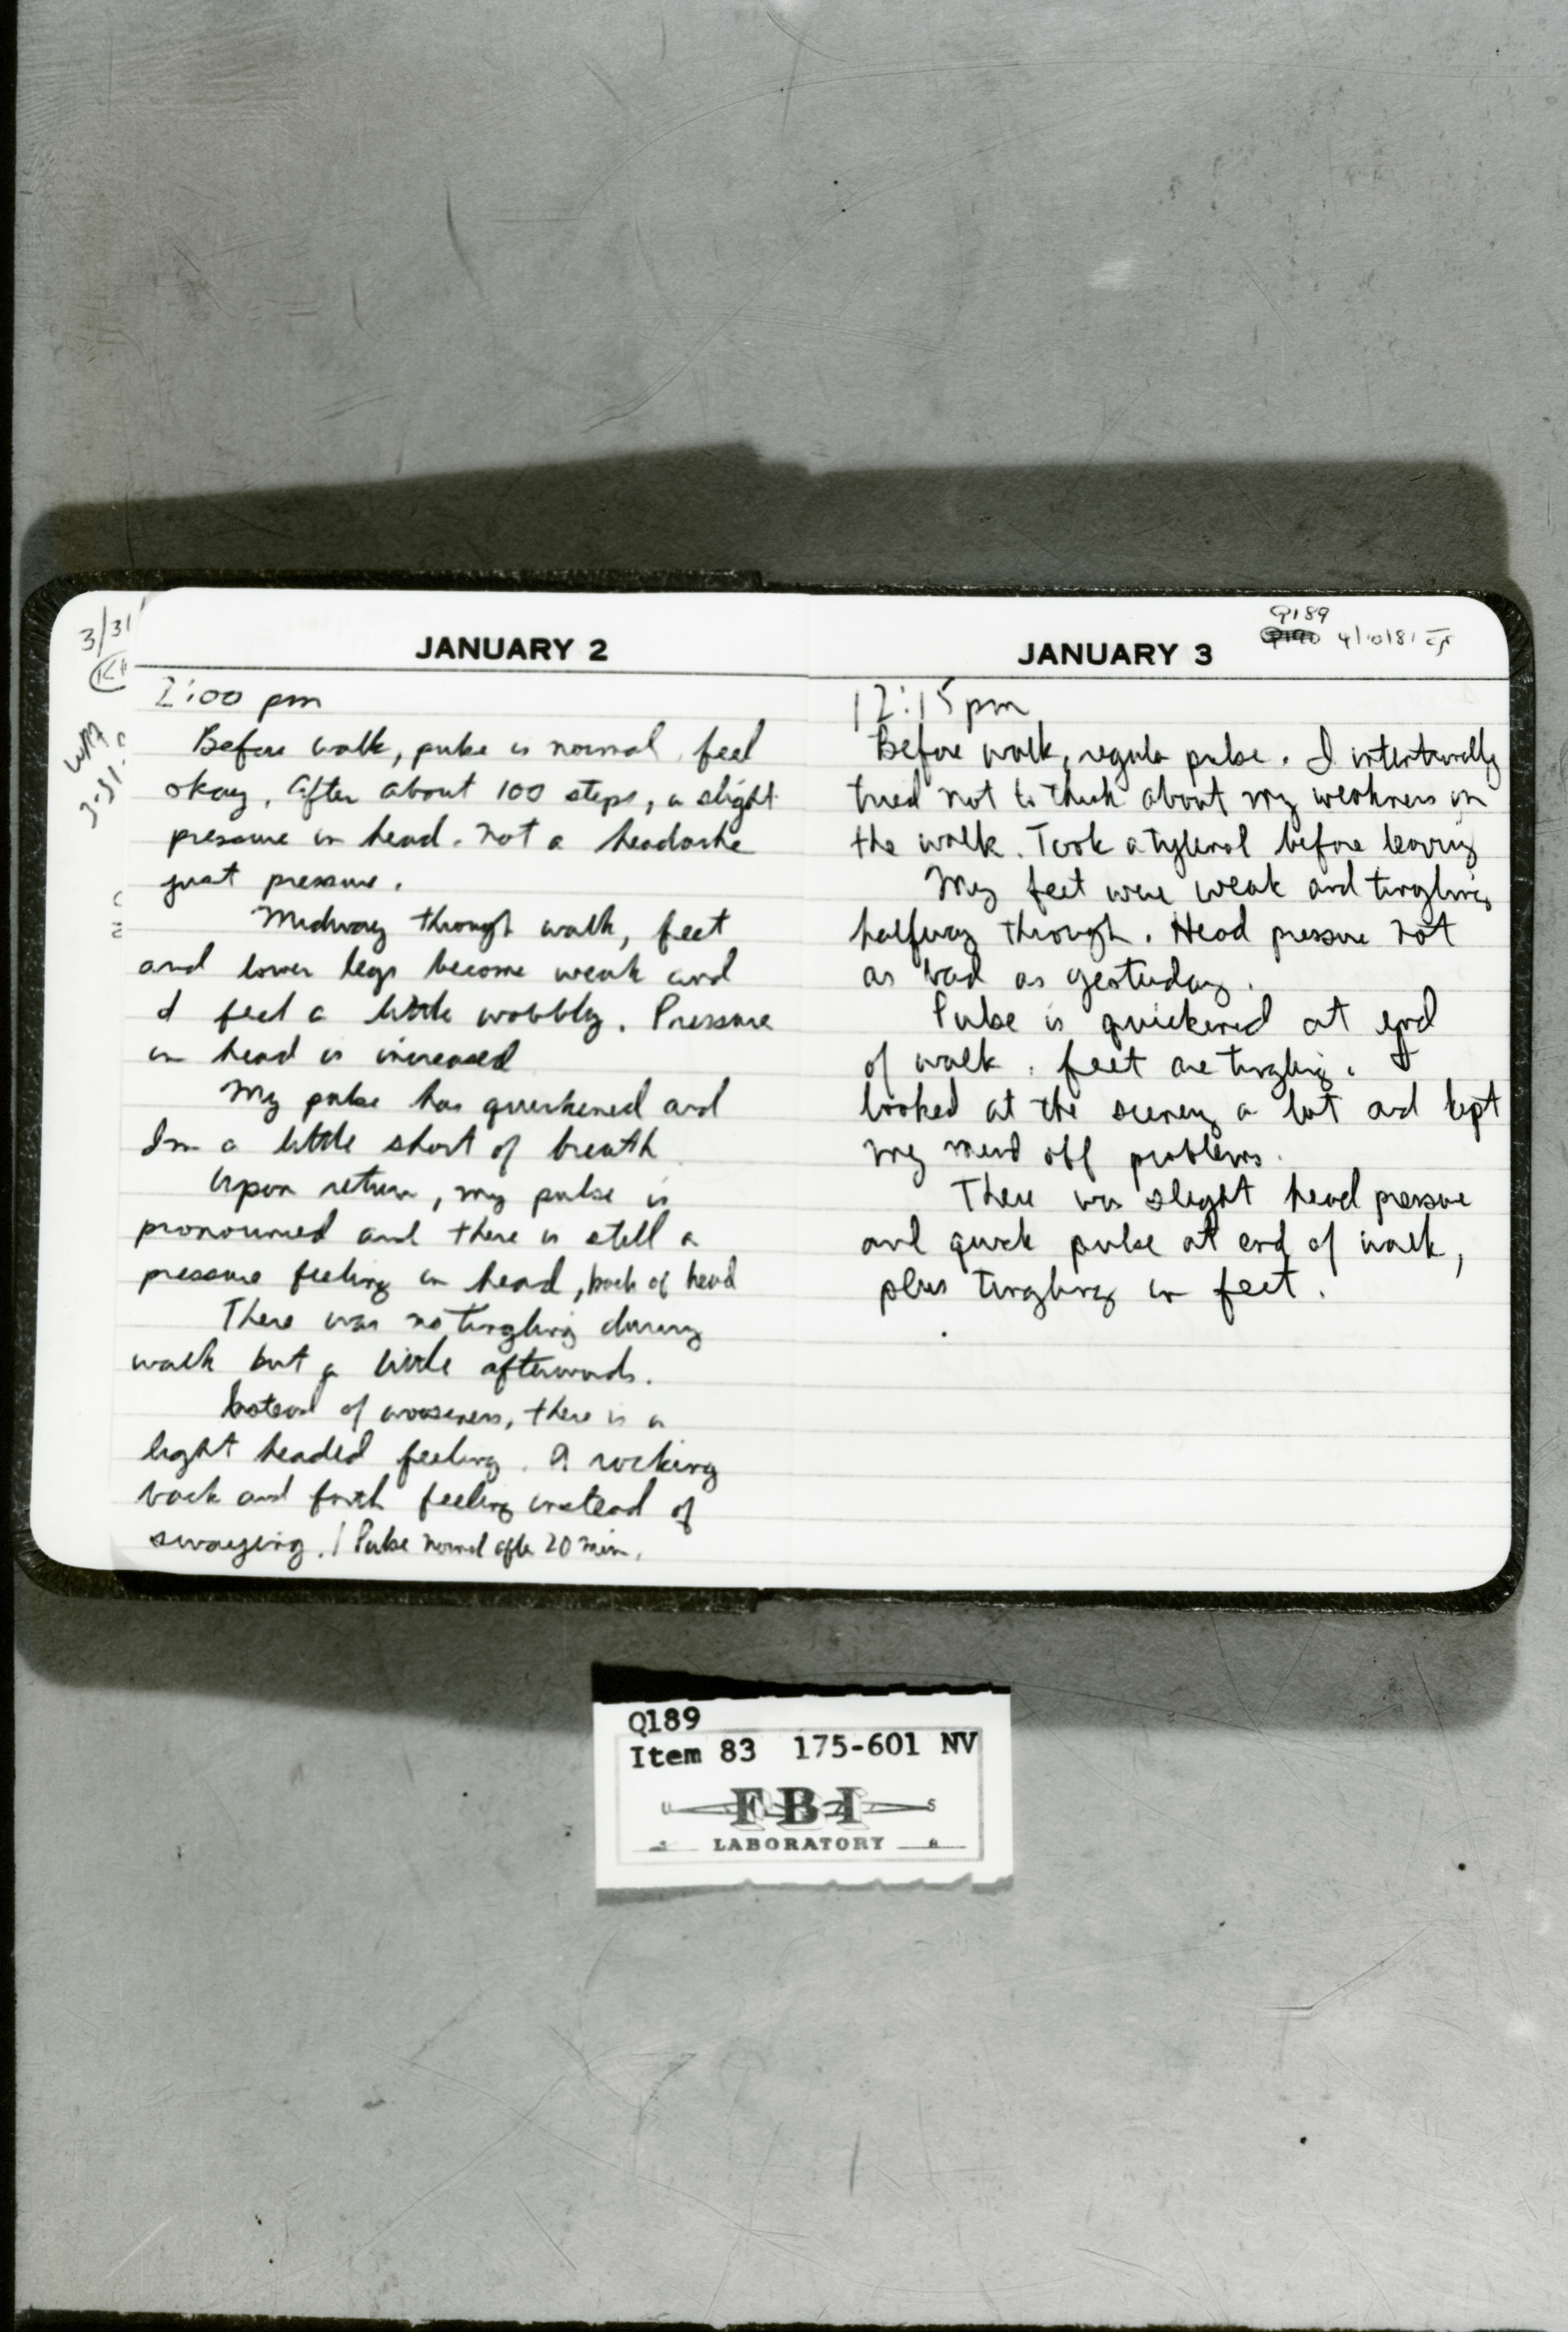 3/31
JANUARY 2
2:00 pm
Before walk, pulse is normal, feel
okay. After about 100 steps, a slight
pressure in head. Not a headache
just pressure.
Midway through walk, feet
and lower legs become weak and
I feel a little wobbly. Pressure
in head is increased
My pulse has quickened and
I'm a little short of breath
Upon return, my pulse is
pronounced and there is still a
pressure feeling in head, back of head
There was no tingling during
walk but a little afterwards.
Instead of wooziness, there is a
light headed feeling. A rocking
back and forth feeling instead of
swaying. / Pulse normal after 20 min.
Q189
4/10/81
JANUARY 3
12:15 pm
Before walk, regular pulse. I intentionally
tried not to think about my weakness on
the walk. Took a tylenol before leaving
My feet were weak and tingling
halfway through. Head pressure not
as bad as yesterday.
Pulse is quickened at end
of walk. feet are tingling. I
looked at the scenery a lot and kept
my mind off problems.
There was slight head pressure
and quick pulse at end of walk,
plus tingling in feet.
Q189
Item 83 175-601 NV
U FBI S
LABORATORY